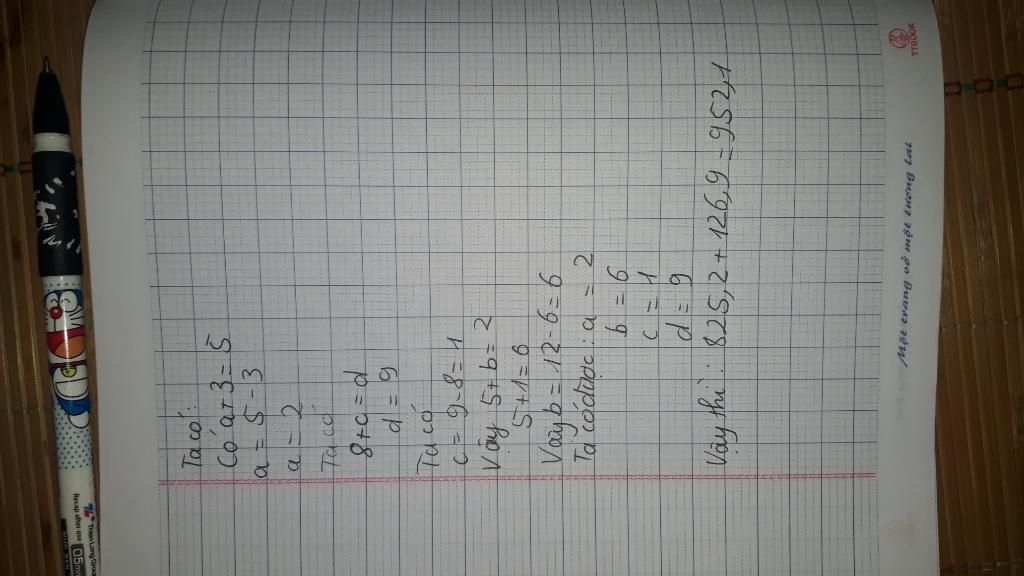 Ta có:
Có a+3=5
a = 5-3
a = 2
Ta có
8+c=d
d = 9
Ta có
c = 9-8=1
Vậy 5+b=2
5+1=6
Vậy b = 12-6=6
Ta có được: a = 2
b = 6
c = 1
d = 9
Vậy thì : 825,2+126,9=952,1
Một trang vở một tương lai
TTBOOK
Recap after use
Thien Long Group